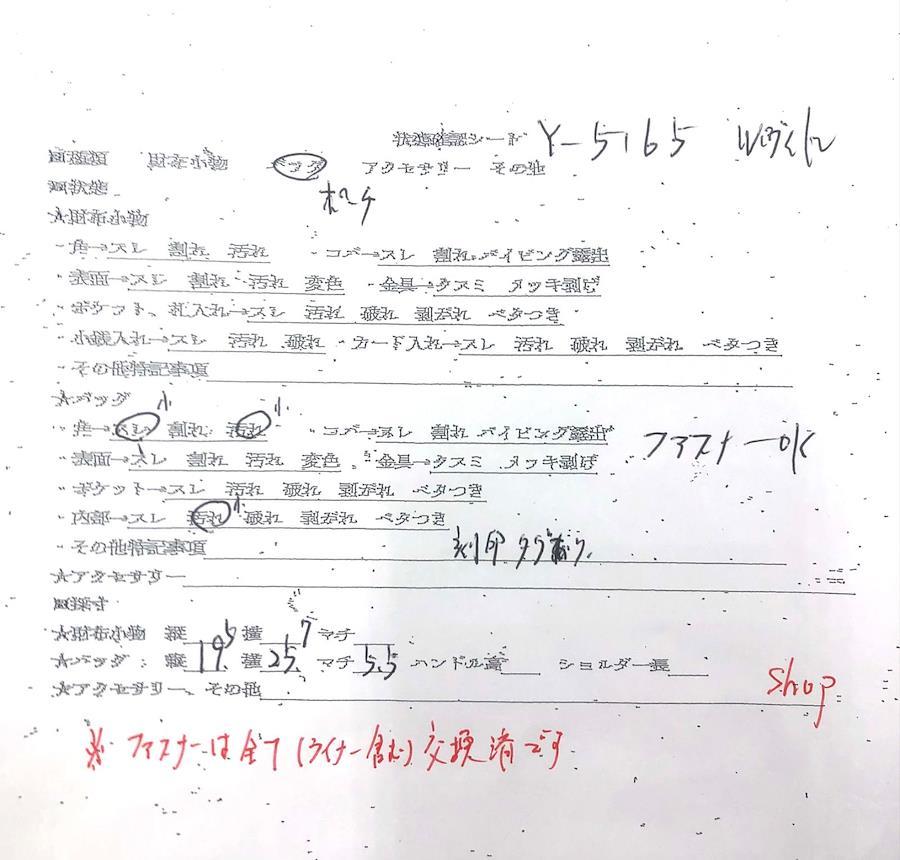 状態確認シート Y-5165
□種類 財布小物 バッグ アクセサリー その他
□状態 ポーチ
★財布小物
・角→スレ 割れ 汚れ ・コバ→スレ 割れ パイピング露出
・表面→スレ 割れ 汚れ 変色 ・金具→クスミ メッキ剥げ
・ポケット、札入れ→スレ 汚れ 破れ 剥がれ ベタつき
・小銭入れ→スレ 汚れ 破れ ・カード入れ→スレ 汚れ 破れ 剥がれ ベタつき
・その他特記事項
★バッグ 小 小
・角→スレ 割れ 汚れ ・コバ→スレ 割れ パイピング露出 ファスナーOK
・表面→スレ 割れ 汚れ 変色 ・金具→クスミ メッキ剥げ
・ポケット→スレ 汚れ 破れ 剥がれ ベタつき
・内部→スレ 汚れ 小 破れ 剥がれ ベタつき
・その他特記事項 刻印 タグ有り
★アクセサリー
□採寸
★財布小物 縦 横 マチ
★バッグ: 縦 19.5 横 25.7 マチ 5.5 ハンドル高 ショルダー長
★アクセサリー、その他
shop
※ ファスナーは全て(ライナー含む)交換済です